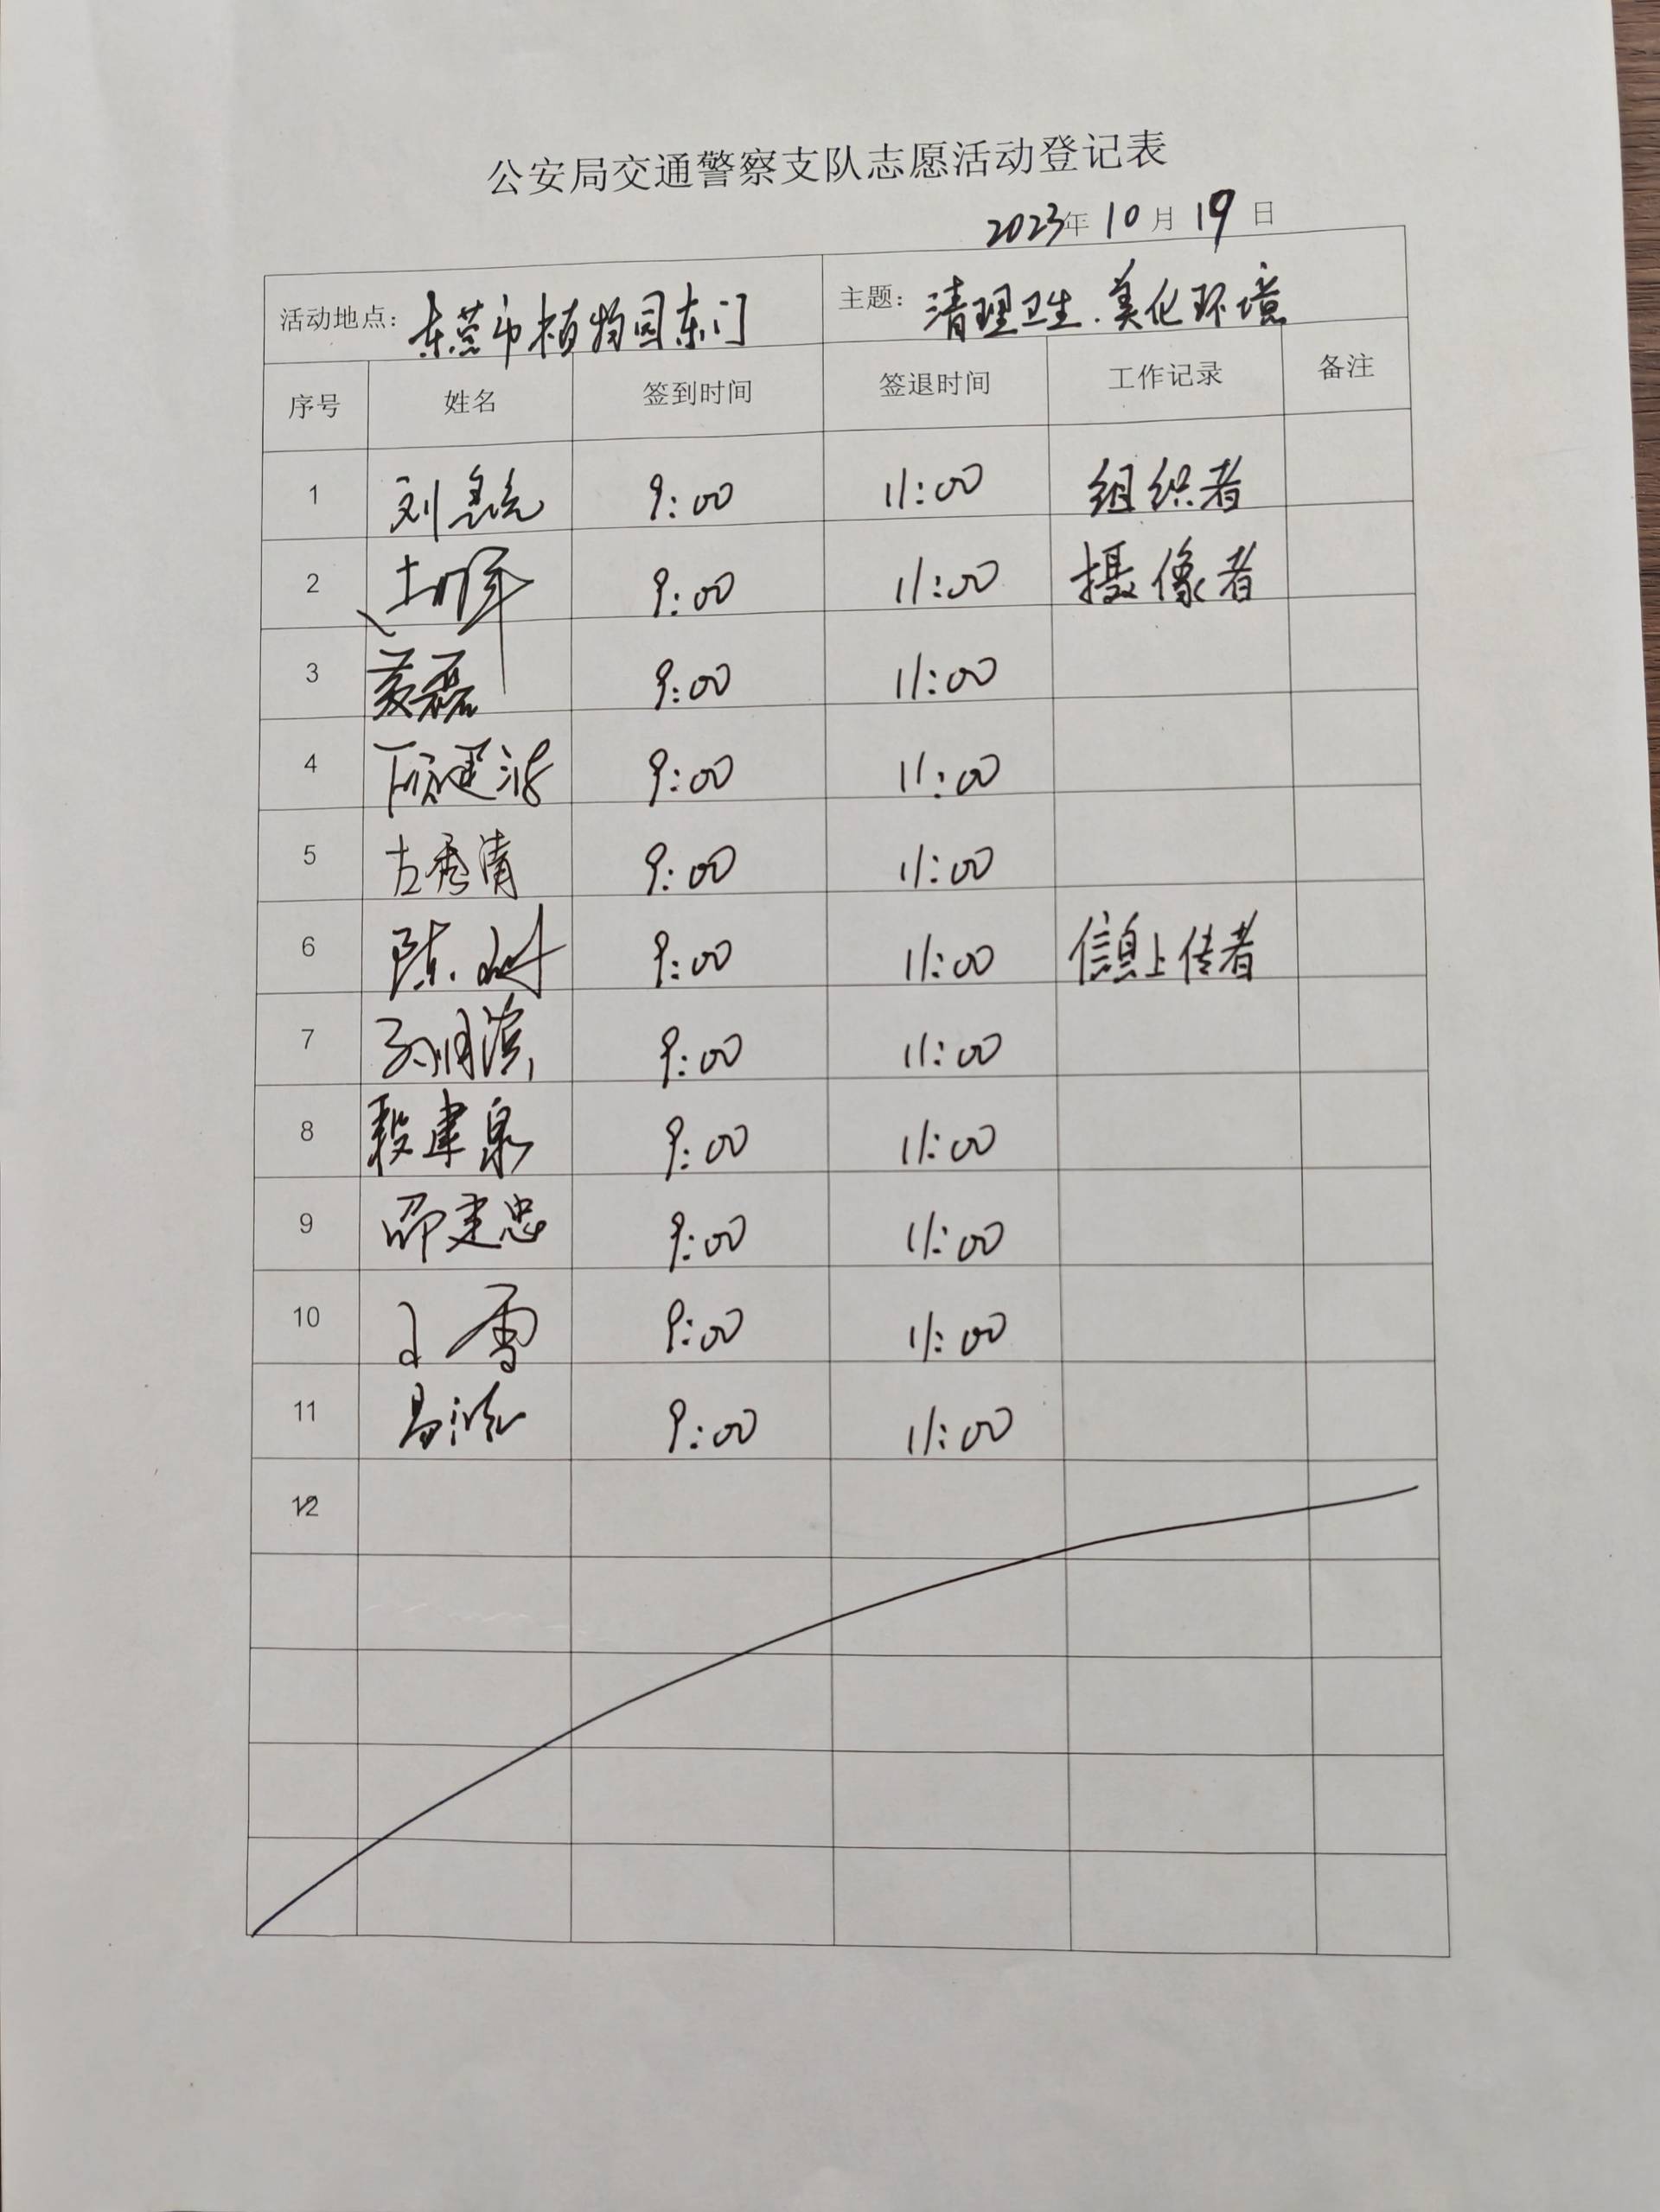 公安局交通警察支队志愿活动登记表
2023年 10月 19日
活动地点: 东莞市植物园东门 主题: 清理卫生.美化环境
序号 姓名 签到时间 签退时间 工作记录 备注
1 刘 9:00 11:00 组织者
2 9:00 11:00 摄像者
3 黄磊 9:00 11:00
4 顾建 9:00 11:00
5 古秀清 9:00 11:00
6 陈 9:00 11:00 信息上传者
7 孙润滨 9:00 11:00
8 段建泉 9:00 11:00
9 邵建忠 9:00 11:00
10 王雪 9:00 11:00
11 易 9:00 11:00
12